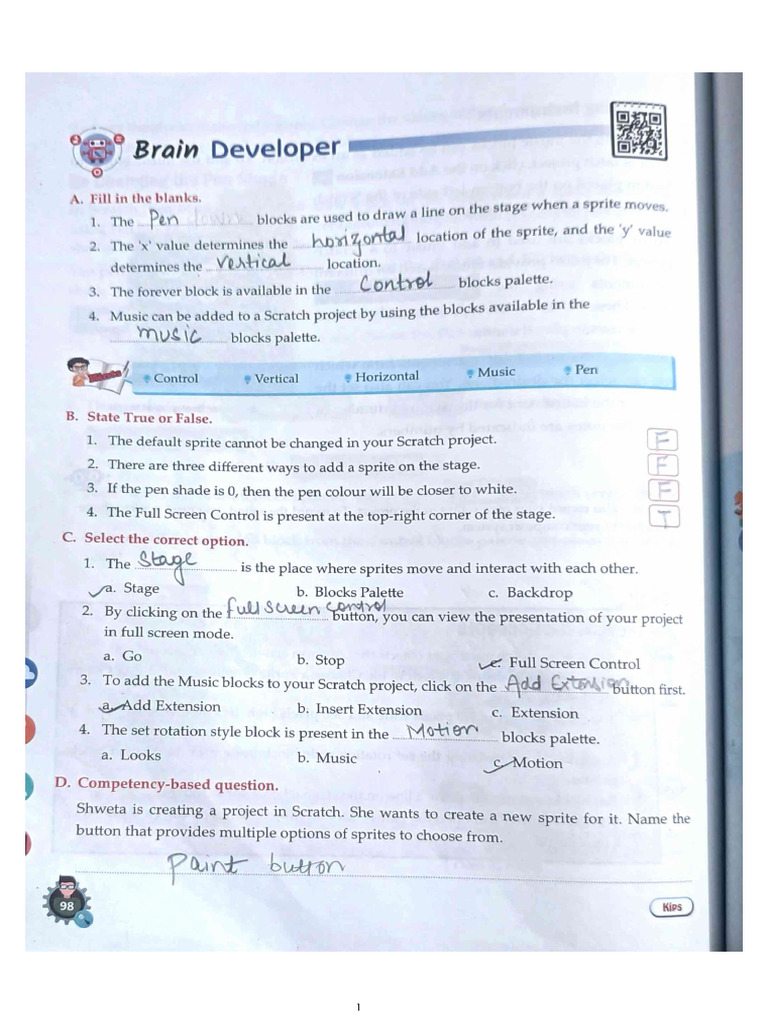 Brain Developer
A. Fill in the blanks.
1. The Pen down blocks are used to draw a line on the stage when a sprite moves.
2. The 'x' value determines the horizontal location of the sprite, and the 'y' value
determines the vertical location.
3. The forever block is available in the Control blocks palette.
4. Music can be added to a Scratch project by using the blocks available in the
music blocks palette.
Hints
Control Vertical Horizontal Music Pen
B. State True or False.
1. The default sprite cannot be changed in your Scratch project. F
2. There are three different ways to add a sprite on the stage. F
3. If the pen shade is 0, then the pen colour will be closer to white. F
4. The Full Screen Control is present at the top-right corner of the stage. T
C. Select the correct option.
1. The Stage is the place where sprites move and interact with each other.
a. Stage b. Blocks Palette c. Backdrop
2. By clicking on the full screen control button, you can view the presentation of your project
in full screen mode.
a. Go b. Stop c. Full Screen Control
3. To add the Music blocks to your Scratch project, click on the Add Extension button first.
a. Add Extension b. Insert Extension c. Extension
4. The set rotation style block is present in the Motion blocks palette.
a. Looks b. Music c. Motion
D. Competency-based question.
Shweta is creating a project in Scratch. She wants to create a new sprite for it. Name the
button that provides multiple options of sprites to choose from.
Paint button
98
Kips
1